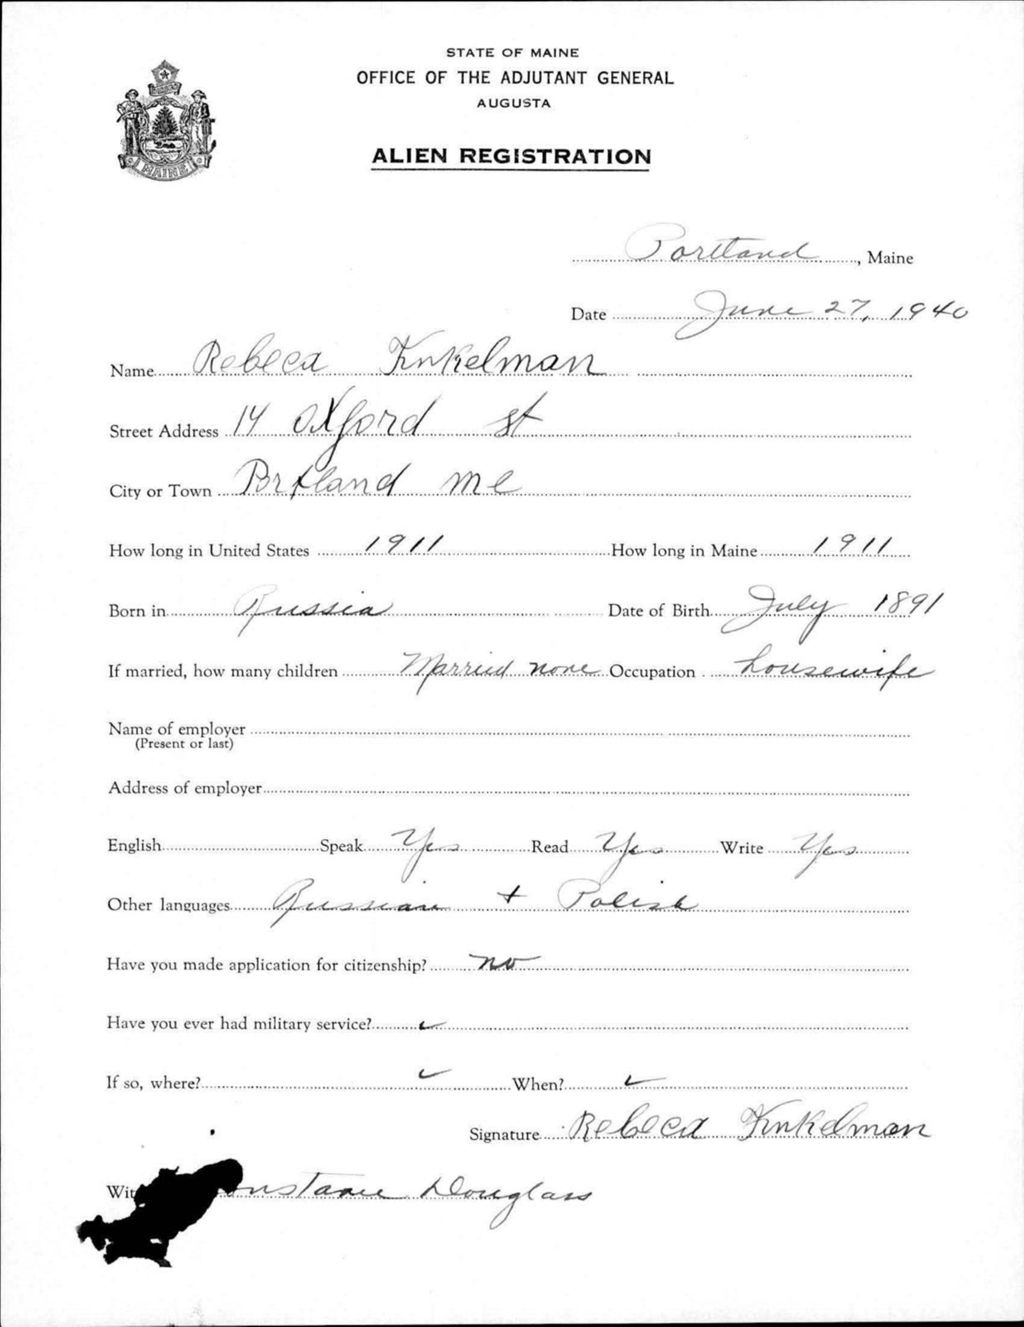 STATE OF MAINE
OFFICE OF THE ADJUTANT GENERAL
AUGUSTA
ALIEN REGISTRATION
MAINE
Portland, Maine
Date June 27, 1940
Name Rebeca Finkelman
Street Address 14 Oxford st
City or Town Portland Me
How long in United States 1911 How long in Maine 1911
Born in Russia Date of Birth July 1891
If married, how many children Married none Occupation housewife
Name of employer
(Present or last)
Address of employer
English Speak Yes Read Yes Write Yes
Other languages Russian + Polish
Have you made application for citizenship? no
Have you ever had military service? ✓
If so, where? ✓ When? ✓
Signature Rebeca Finkelman
Douglass